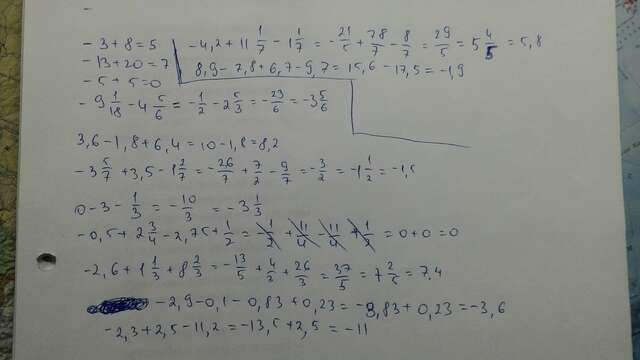 - 3 + 8 = 5
- 13 + 20 = 7
- 5 + 5 = 0
- 4,2 + 11 1/7 - 1 1/7 = - 21/5 + 78/7 - 8/7 = 29/5 = 5 4/5 = 5,8
8,9 - 7,8 + 6,7 - 9,7 = 15,6 - 17,5 = -1,9
- 9 1/18 - 4 5/6 = - 1/2 - 2 5/3 = - 23/6 = - 3 5/6
3,6 - 1,8 + 6,4 = 10 - 1,8 = 8,2
- 3 5/7 + 3,5 - 1 2/7 = - 26/7 + 7/2 - 9/7 = - 3/2 = - 1 1/2 = - 1,5
0 - 3 - 1/3 = - 10/3 = - 3 1/3
- 0,5 + 2 3/4 - 2,75 + 1/2 = - 1/2 + 11/4 - 11/4 + 1/2 = 0 + 0 = 0
- 2,6 + 1 1/3 + 8 2/3 = - 13/5 + 4/3 + 26/3 = 37/5 = 7 2/5 = 7,4
- 2,9 - 0,1 - 0,83 + 0,23 = - 3,83 + 0,23 = - 3,6
- 2,3 + 2,5 - 11,2 = - 13,5 + 2,5 = - 11